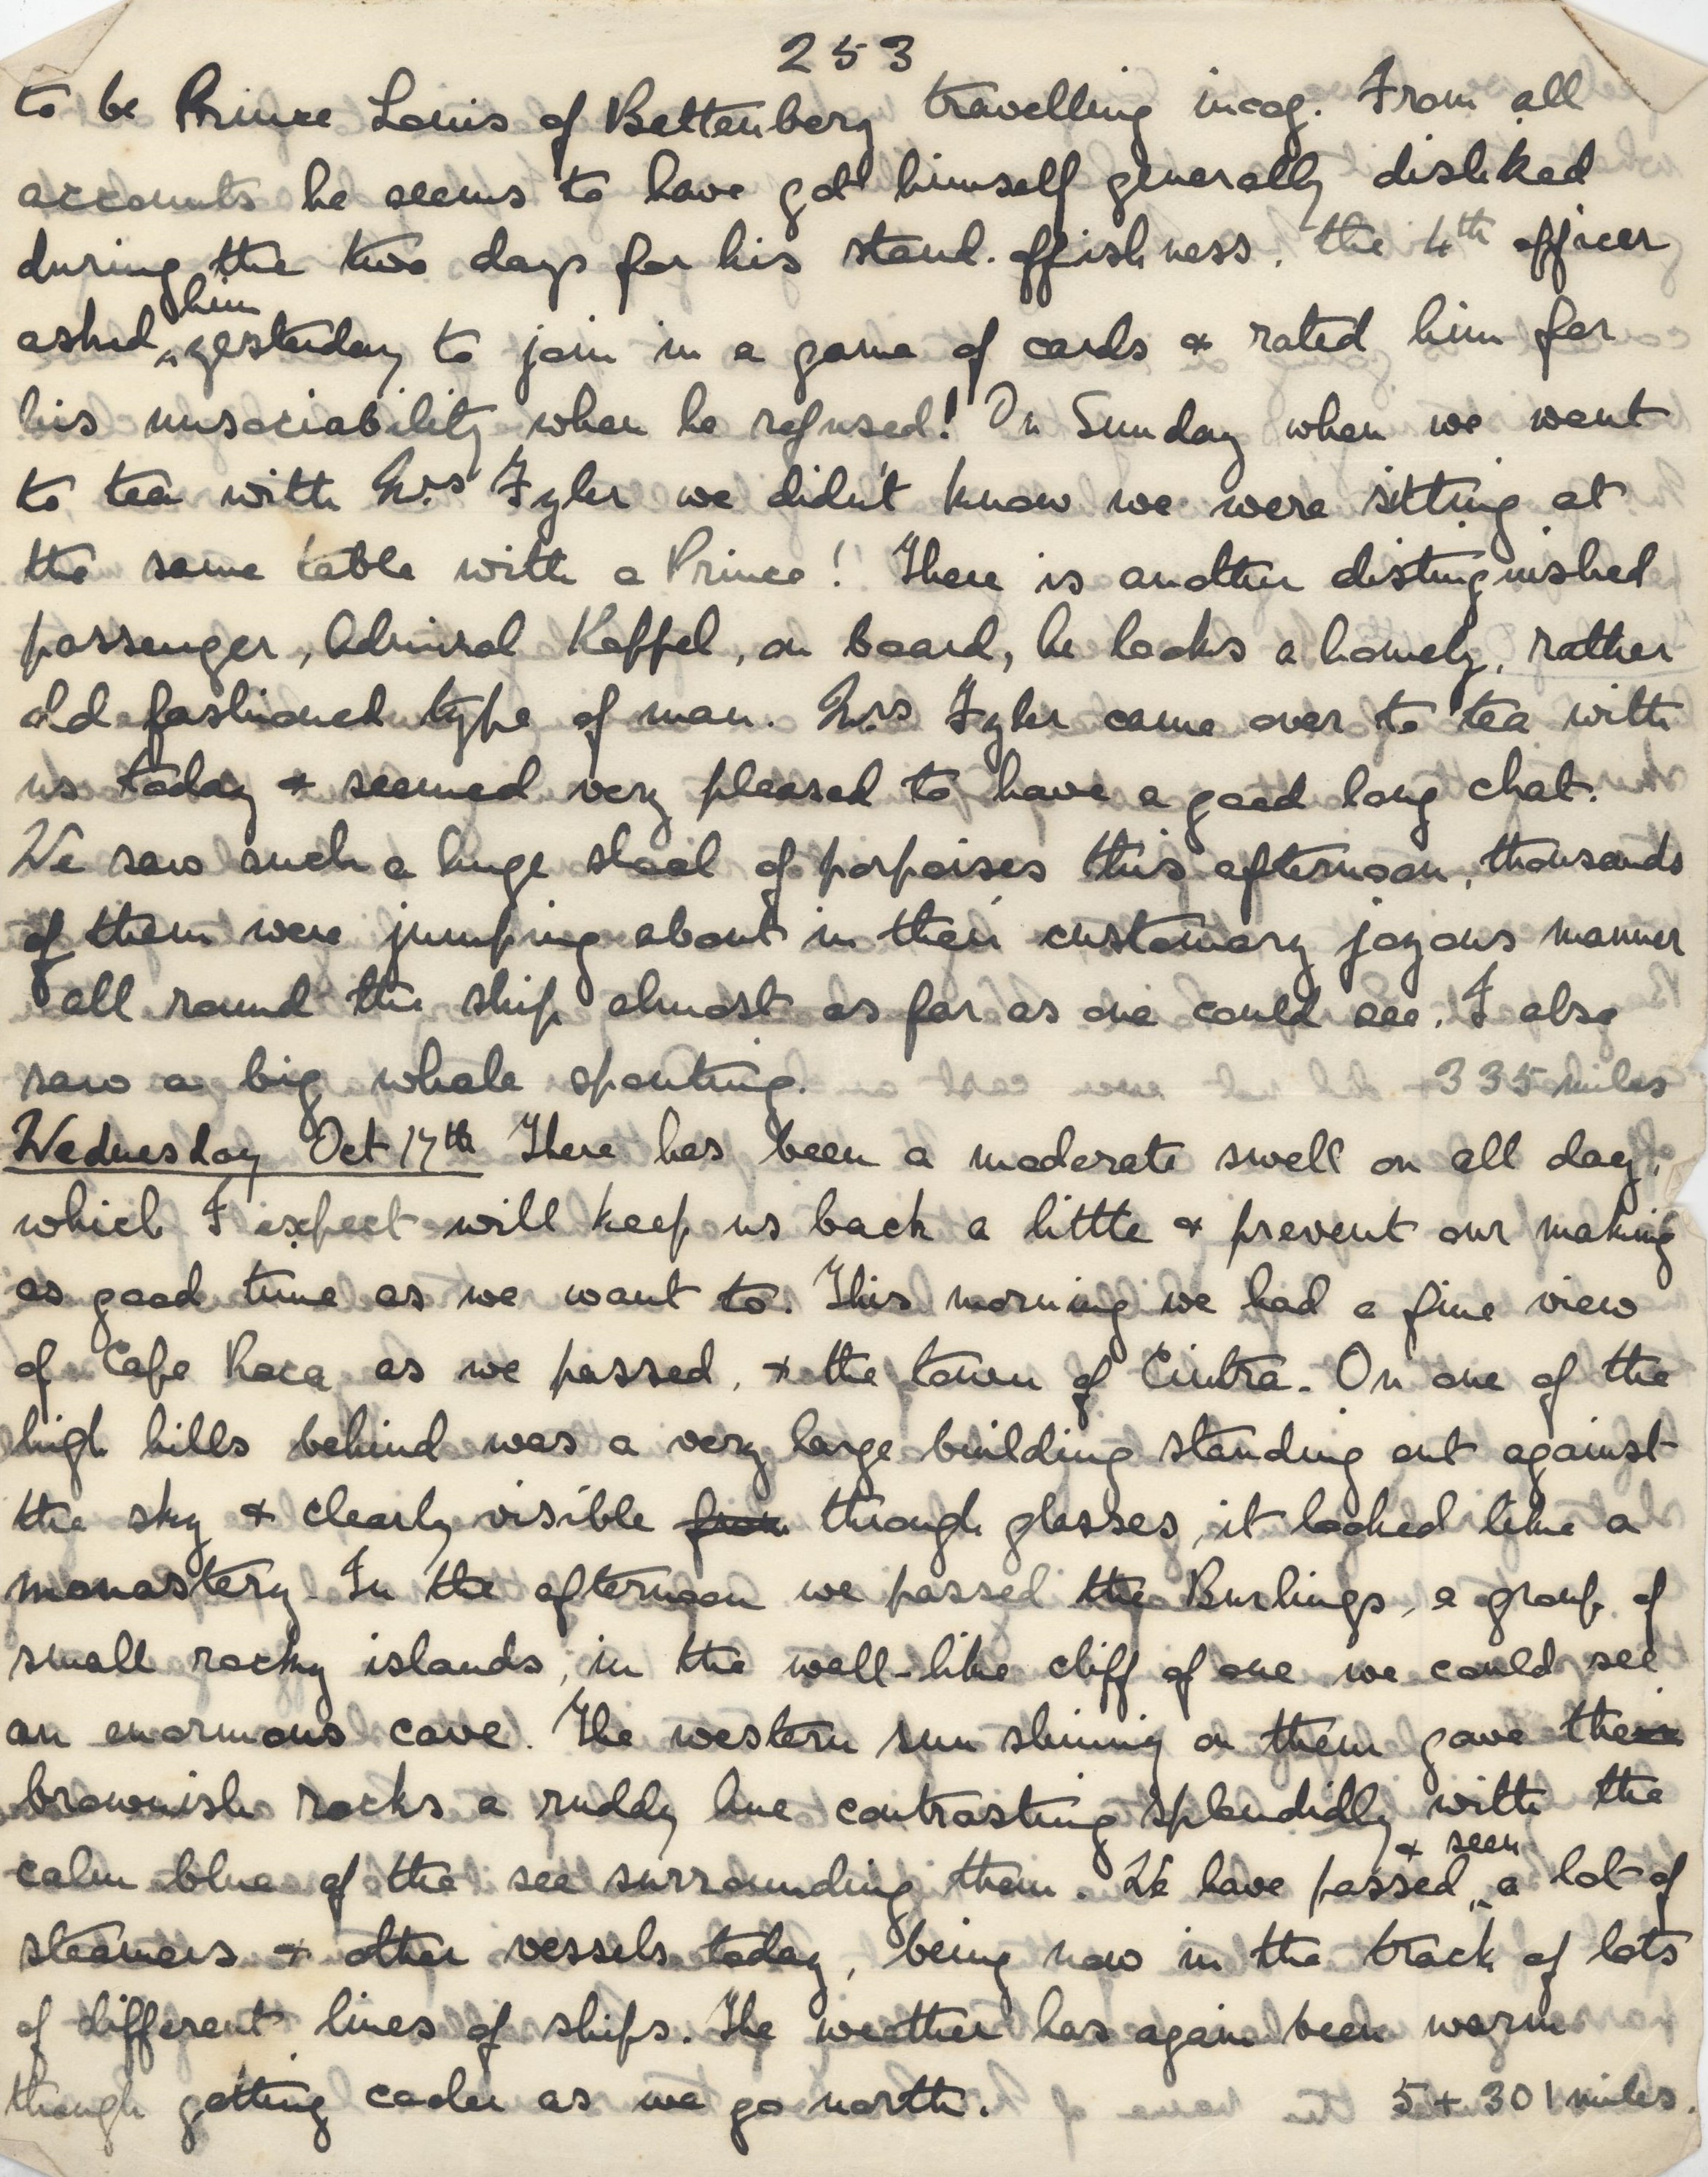 253
to be Prince Louis of Battenberg travelling incog. From all
accounts he seems to have got himself generally disliked
during the two days for his stand-offishness. The 4th officer
asked ^him yesterday to join in a game of cards & rated him for
his unsociability when he refused! On Sunday when we went
to tea with Mrs Fyler we didn't know we were sitting at
the same table with a Prince! There is another distinguished
passenger, Admiral Keppel, on board, he looks a homely, rather
old fashioned type of man. Mrs Fyler came over to tea with
us today & seemed very pleased to have a good long chat.
We saw such a huge shoal of porpoises this afternoon, thousands
of them were jumping about in their customary joyous manner
all round the ship almost as far as one could see. I also
saw a big whale spouting. 335 miles
Wednesday Oct 17th There has been a moderate swell on all day,
which I expect will keep us back a little & prevent our making
as good time as we want to. This morning we had a fine view
of Cape Roca as we passed, & the town of Cintra. On one of the
high hills behind was a very large building standing out against
the sky & clearly visible from through glasses, it looked like a
monastery. In the afternoon we passed the Burlings, a group of
small rocky islands, in the wall-like cliff of one we could see
an enormous cave. The western sun shining on them gave their
brownish rocks a ruddy hue contrasting splendidly with the
calm blue of the sea surrounding them. We have passed ^& seen a lot of
steamers & other vessels today, being now in the track of lots
of different lines of ships. The weather has again been warm
though getting cooler as we go north. 5 + 301 miles.